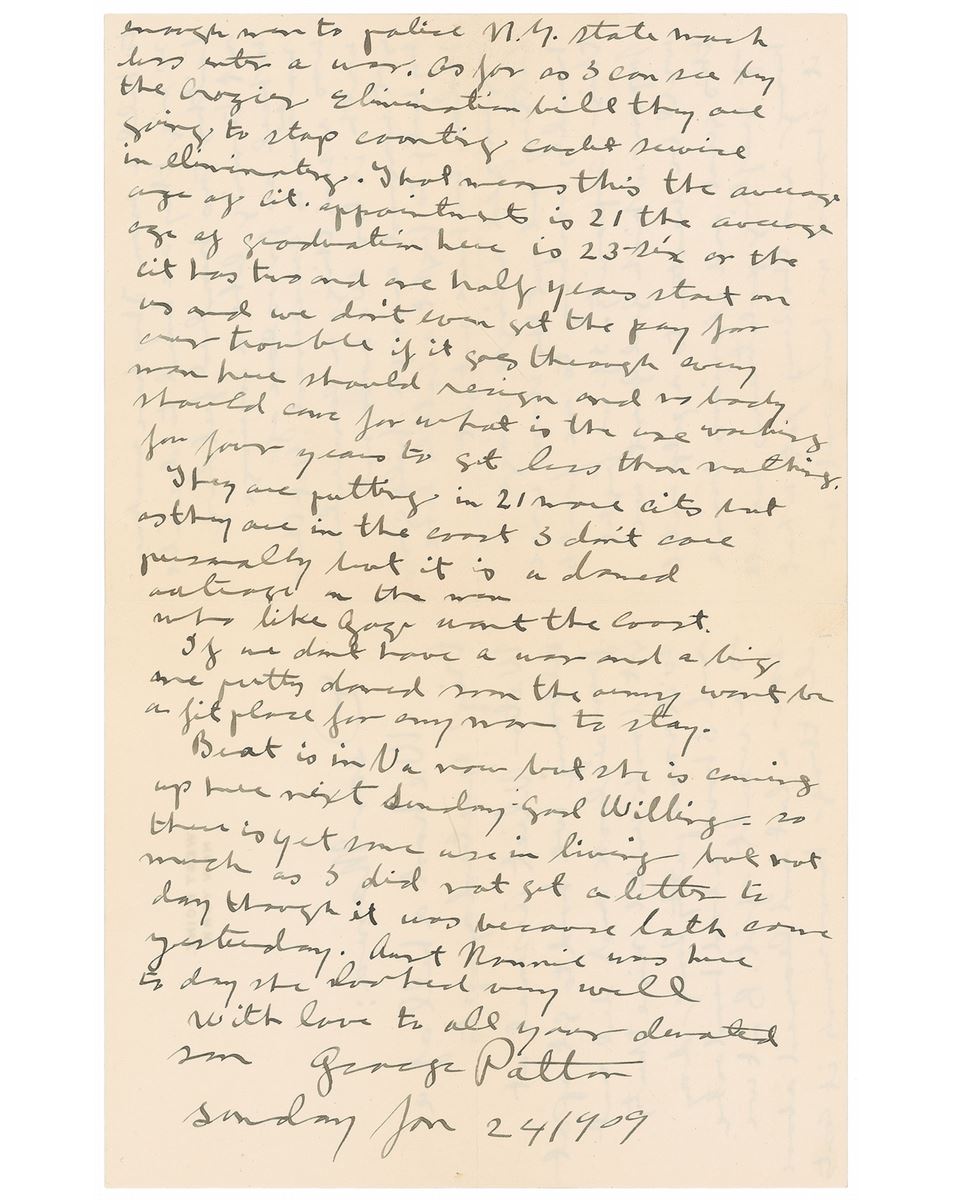 enough men to police N.Y. state much
less enter a war. As far as I can see by
the Crozier Elimination bill they are
going to stop counting cadet service
in eliminating. That means this the average
age of cit. appointments is 21 the average
age of graduation here is 23-six or the
cit has two and one half years start on
us and we don't even get the pay for
our trouble if it goes through every
man here should resign and no body
should come for what is the use working
for four years to get less than nothing.
They are putting in 21 more cits but
as they are in the coast I don't care
personally but it is a damed
outrage on the men
who like Gage want the coast.
If we don't have a war and a big
one pretty damed soon the army wont be
a fit place for any man to stay.
Beat is in Va now but she is coming
up here next Sunday God Willing - so
there is yet some use in living but not
much as I did not get a letter to
day though it was because both came
yesterday. Aunt Nannie was here
to day she looked very well
With love to all your devoted
son George Patton
Sunday Jan 24/1909